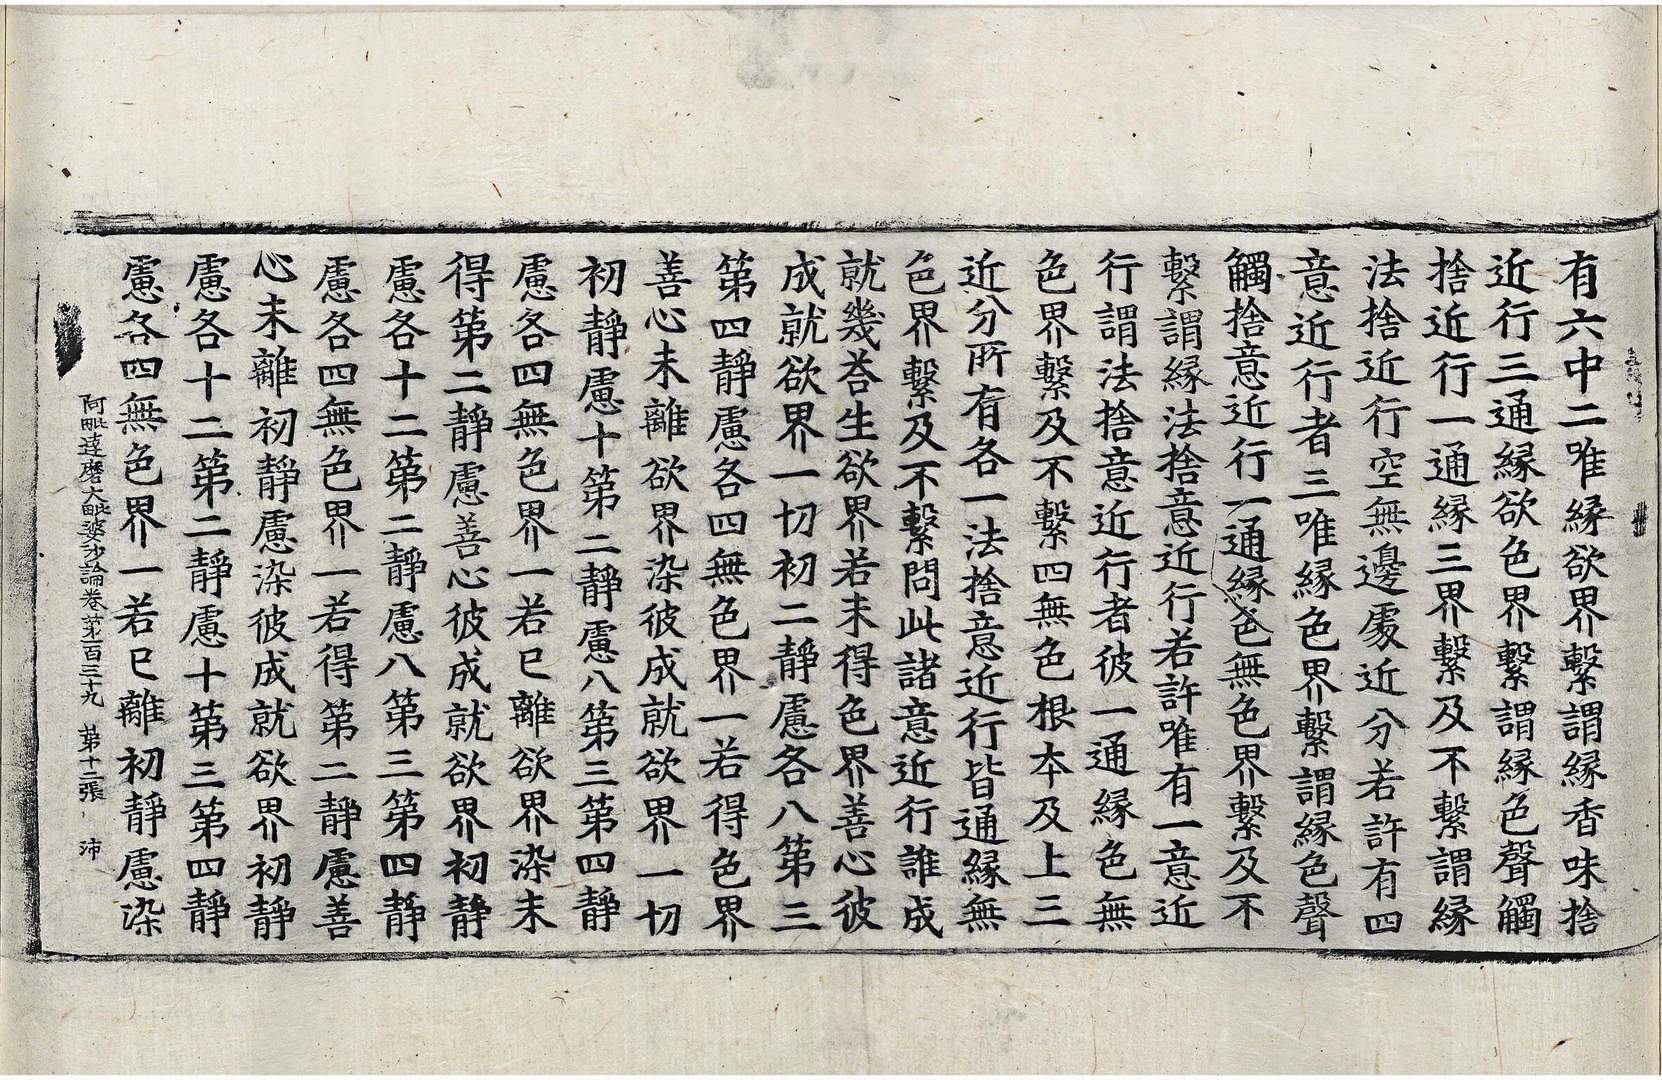 有六中二唯縁欲界繫謂縁香味捨
近行三通縁欲色界繫謂縁色聲觸
捨近行一通縁三界繫及不繫謂縁
法捨近行空無邊處近分若許有四
意近行者三唯縁色界繫謂縁色聲
觸捨意近行一通縁色無色界繫及不
繫謂縁法捨意近行若許唯有一意近
行謂法捨意近行者彼一通縁色無
色界繫及不繫四無色根本及上三
近分所有各一法捨意近行皆通縁無
色界繫及不繫問此諸意近行誰成
就幾荅生欲界若未得色界善心彼
成就欲界一切初二靜慮各八第三
第四靜慮各四無色界一若得色界
善心未離欲界染彼成就欲界一切
初靜慮十第二靜慮八第三第四靜
慮各四無色界一若已離欲界染未
得第二靜慮善心彼成就欲界初靜
慮各十二第二靜慮八第三第四靜
慮各四無色界一若得第二靜慮善
心未離初靜慮染彼成就欲界初靜
慮各十二第二靜慮十第三第四靜
慮各四無色界一若已離初靜慮染
阿毗達磨大毗婆沙論卷第一百三十九 第十二張 沛